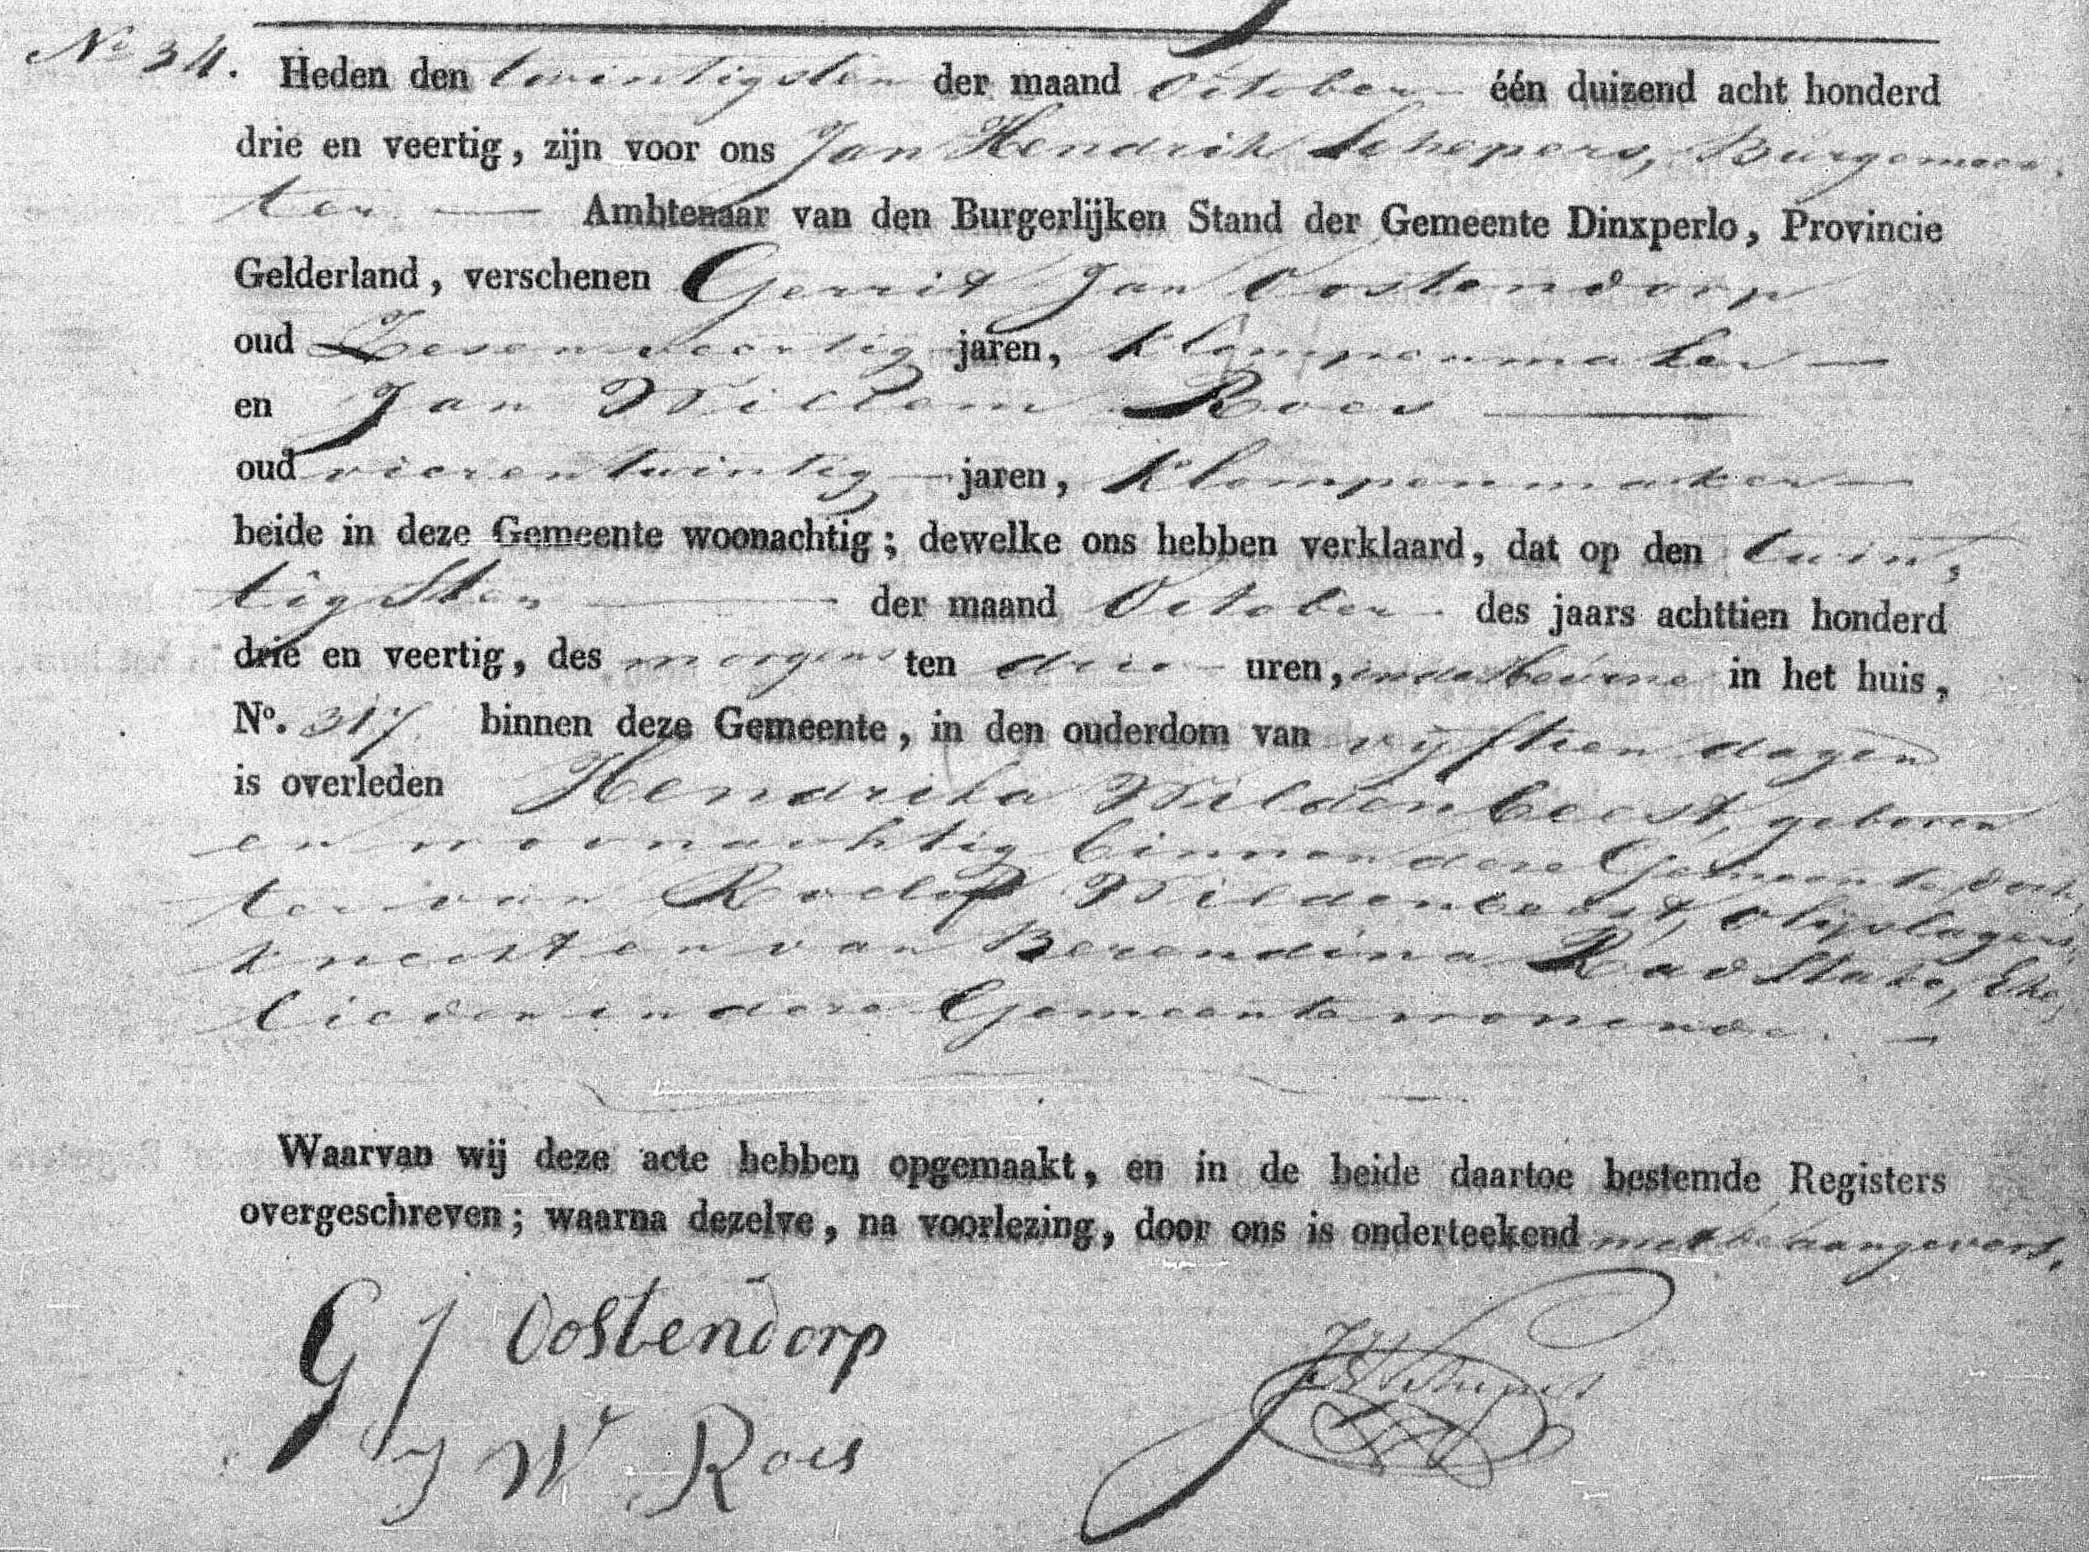 No 34. Heden den twintigsten der maand October één duizend acht honderd
drie en veertig, zijn voor ons Jan Hendrik Schepers, Burgemees,
ter Ambtenaar van den Burgerlijken Stand der Gemeente Dinxperlo, Provincie
Gelderland, verschenen Gerrit Jan Oostendorp
oud Zesenveertig jaren, Klompenmaker
en Jan Willem Roes
oud vierentwintig jaren, Klompenmaker
beide in deze Gemeente woonachtig; dewelke ons hebben verklaard, dat op den twin,
tigsten der maand October des jaars achttien honderd
drie en veertig, des morgens ten drie uren, in de Heurne in het huis,
No. 317 binnen deze Gemeente, in den ouderdom van vijftien dagen
is overleden Hendrika Wildenbeest, geboren
en woonachtig binnen deze Gemeente, doch,
ter van Roelof Wildenbeest, Olijslagers,
knecht en van Berendina Radstake, Ehe,
lieden in deze Gemeente wonende.
Waarvan wij deze acte hebben opgemaakt, en in de beide daartoe bestemde Registers
overgeschreven; waarna dezelve, na voorlezing, door ons is onderteekend met de aangevers.
G J Oostendorp
J W Roes
JHSchepers